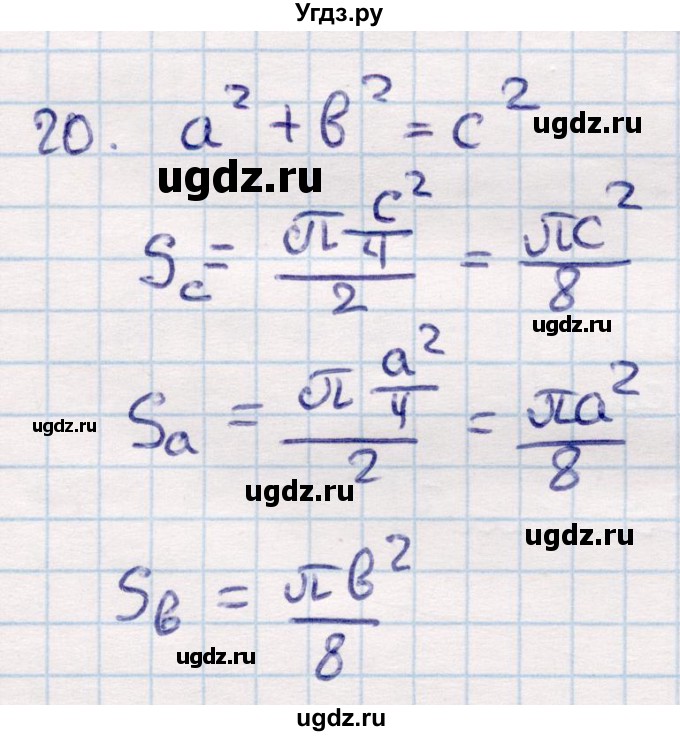 Угдз.ру
20. a² + b² = c²
ugdz.ru
ugdz.ru
S_c = (π c²/4)/2 = πc²/8
ugdz.ru
S_a = (π a²/4)/2 = πa²/8
ugdz.ru
ugdz.ru
ugdz.ru
S_b = πb²/8
ugdz.ru
ugdz.ru